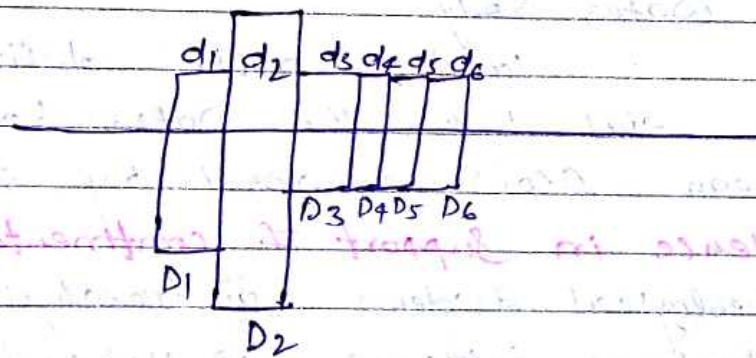 d1 d2 d3 d4 d5 d6
D3 D4 D5 D6
D1
D2